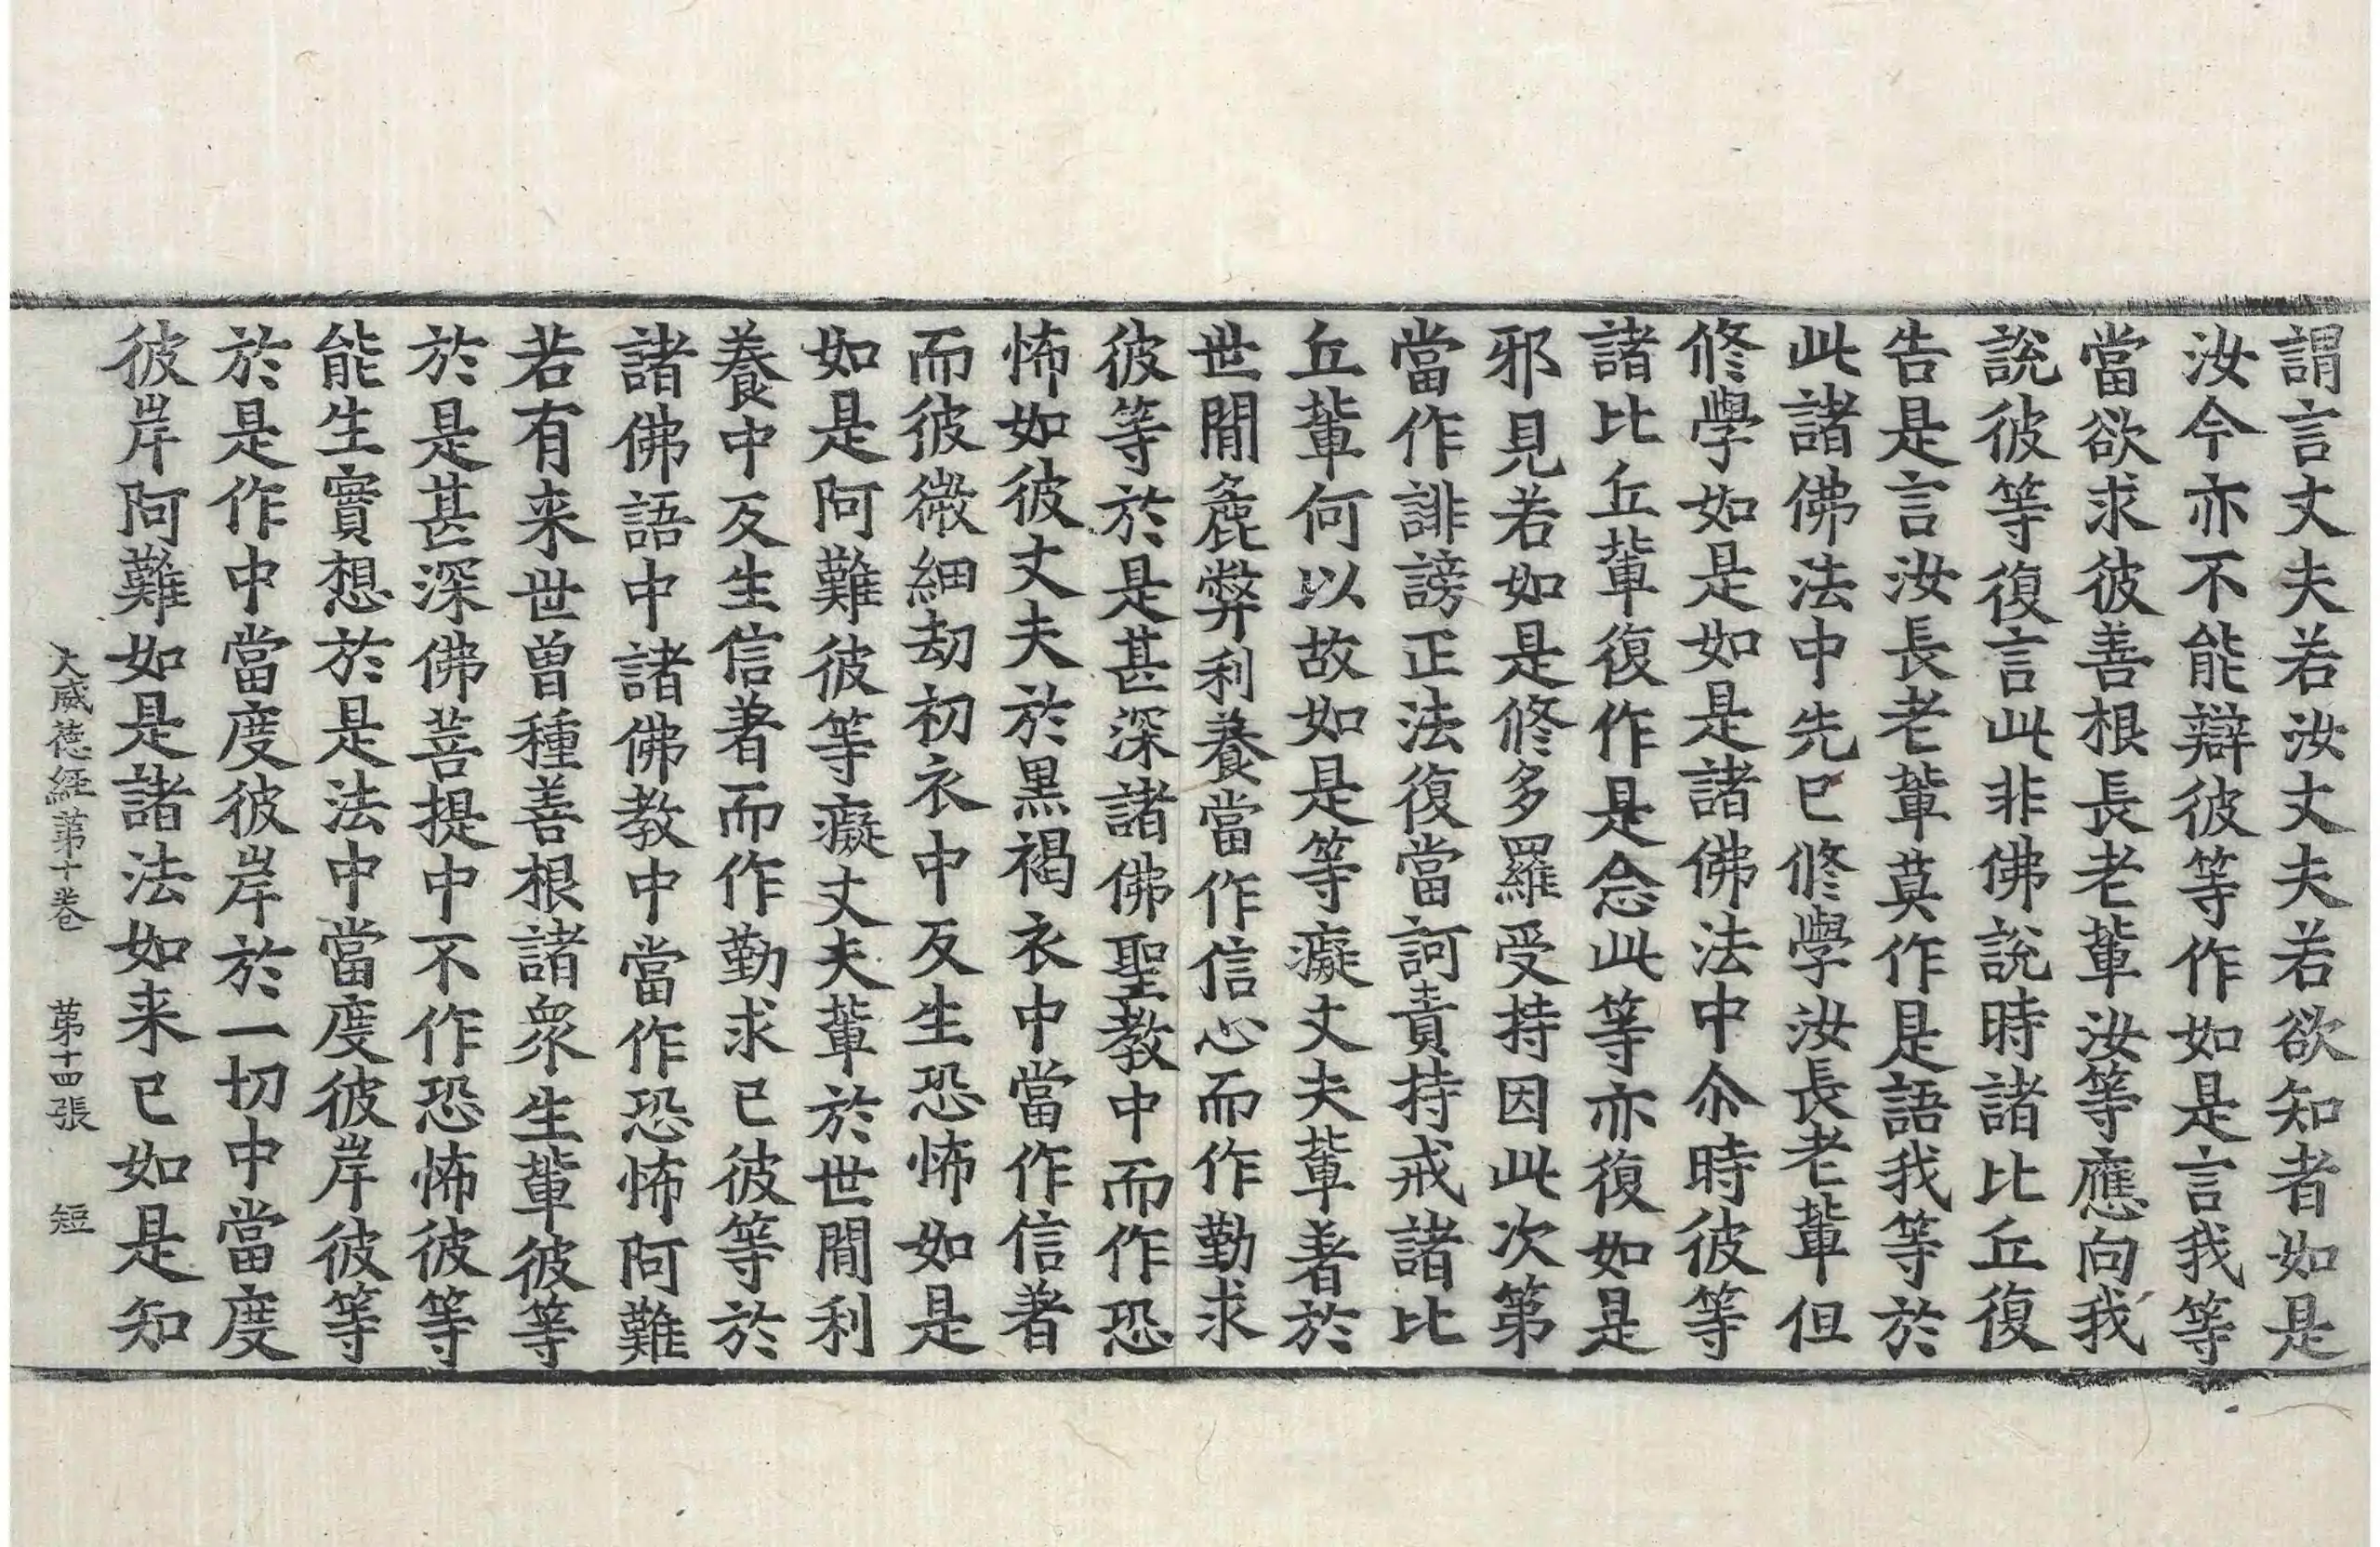 謂言丈夫若汝丈夫若欲知者如是
汝今亦不能辯彼等作如是言我等
當欲求彼善根長老輩汝等應向我
說彼等復言此非佛說時諸比丘復
告是言汝長老輩莫作是語我等於
此諸佛法中先已修學汝長老輩但
修學如是如是諸佛法中尒時彼等
諸比丘輩復作是念此等亦復如是
邪見若如是修多羅受持因此次第
當作誹謗正法復當訶責持戒諸比
丘輩何以故如是等癡丈夫輩著於
世間麁弊利養當作信心而作勤求
彼等於是甚深諸佛聖教中而作恐
怖如彼丈夫於黑褐衣中當作信著
而彼微細劫初衣中反生恐怖如是
如是阿難彼等癡丈夫輩於世間利
養中反生信著而作勤求已彼等於
諸佛語中諸佛教中當作恐怖阿難
若有来世曾種善根諸衆生輩彼等
於是甚深佛菩提中不作恐怖彼等
能生實想於是法中當度彼岸彼等
於是作中當度彼岸於一切中當度
彼岸阿難如是諸法如来已如是知
大威德經第十卷 第十四張 短